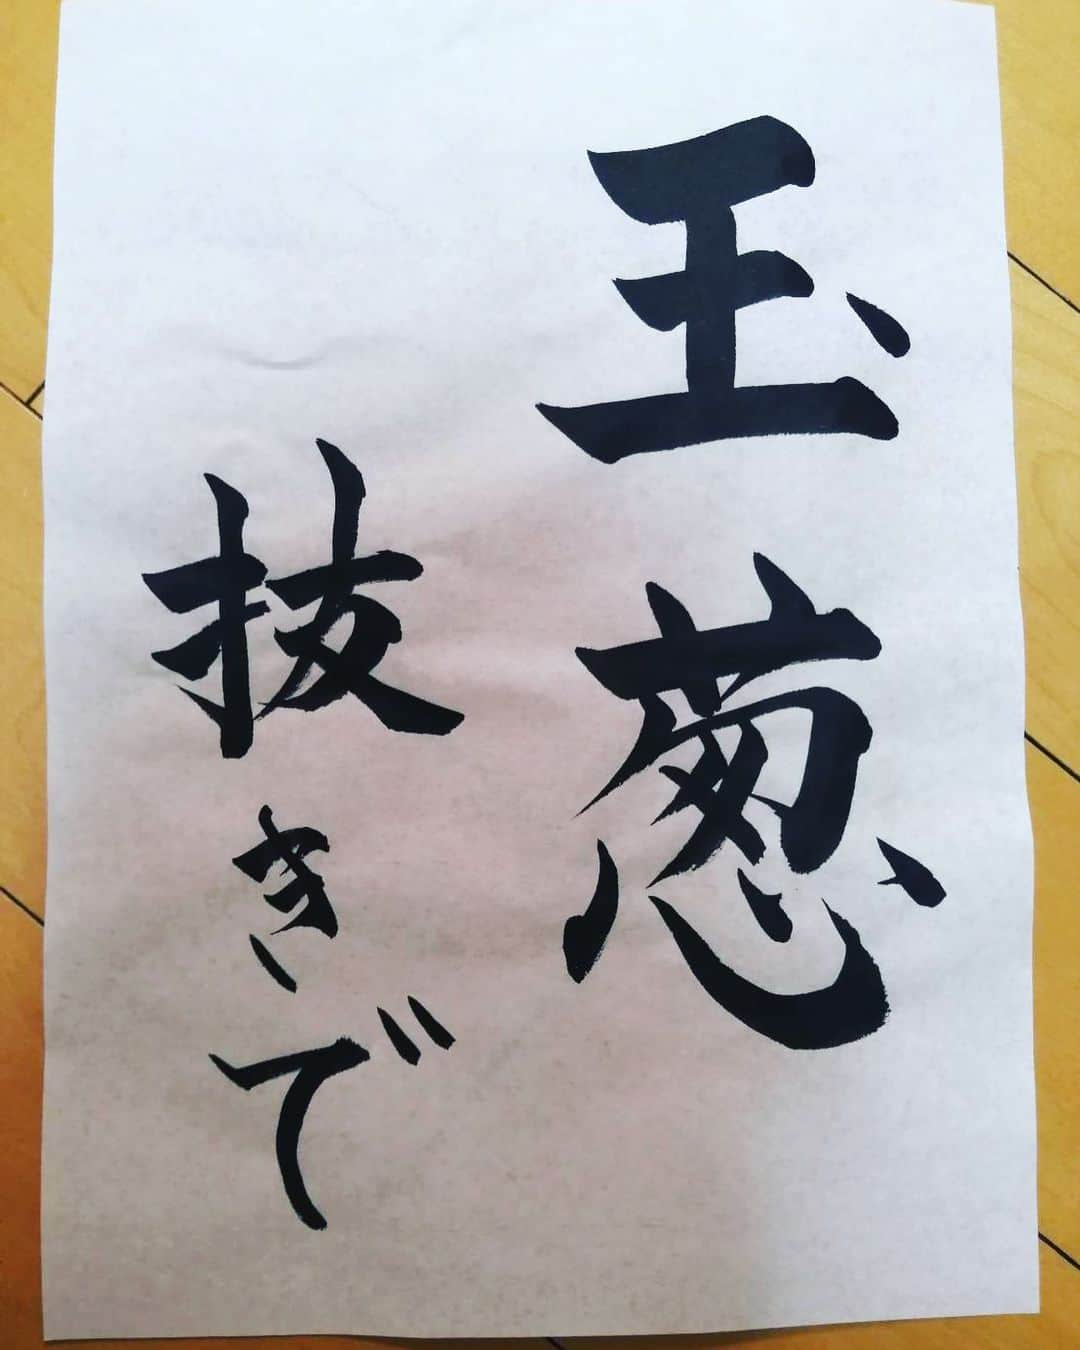 玉葱
抜きで